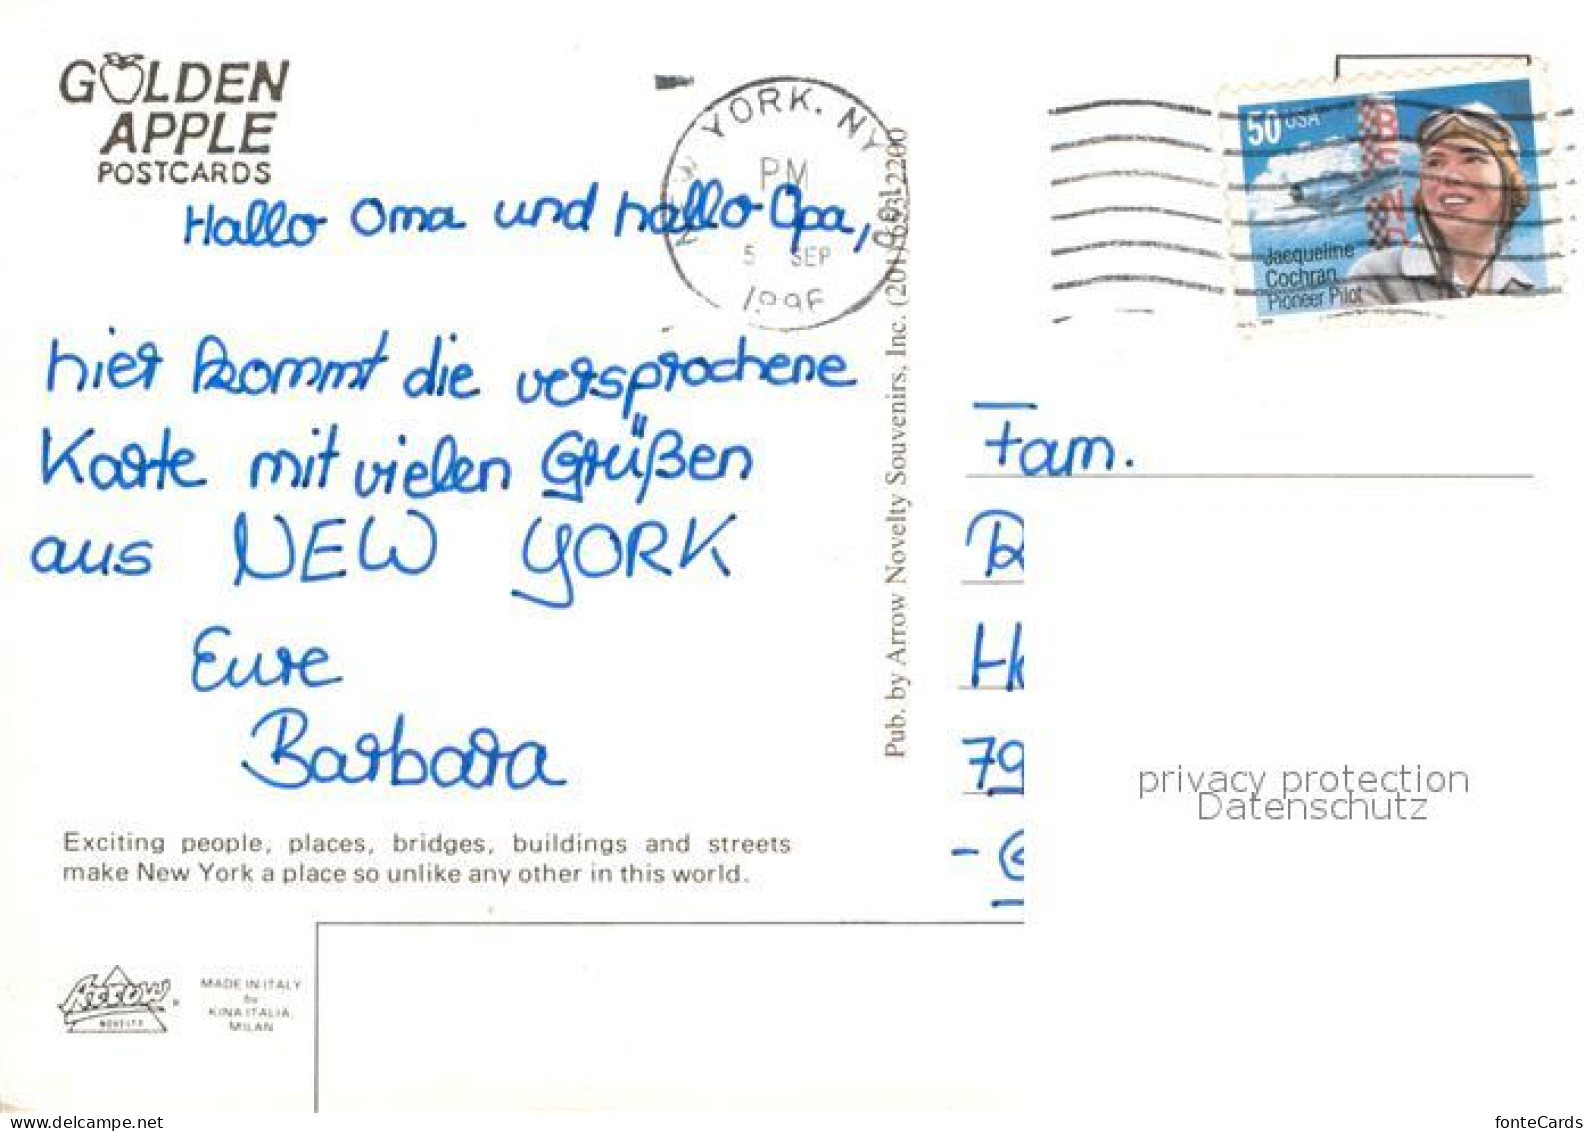 GOLDEN
APPLE
POSTCARDS
NEW YORK. NY
PM
5 SEP
1996
50 USA
BENDIX
Jacqueline
Cochran
Pioneer Pilot
Hallo Oma und hallo Opa,
hier kommt die versprochene
Karte mit vielen Grüßen
aus NEW YORK
Eure
Barbara
Exciting people, places, bridges, buildings and streets
make New York a place so unlike any other in this world.
Arrow
NOVELTY
MADE IN ITALY
by
KINA ITALIA,
MILAN
Pub. by Arrow Novelty Souvenirs, Inc. (201) 2200
Fam.
H
79
privacy protection
Datenschutz
www.delcampe.net
fonteCards